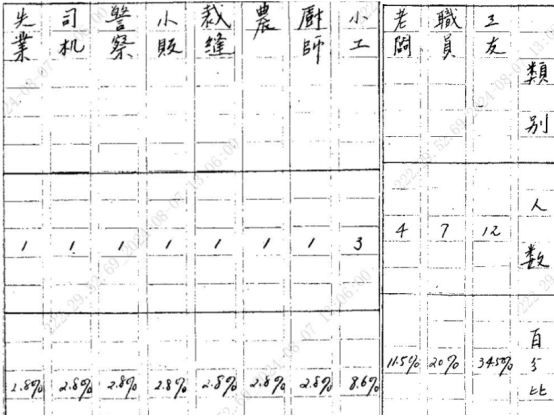 類別 人數 百分比
工友 12 34.5%
職員 7 20%
老闆 4 11.5%
小工 3 8.6%
廚師 1 2.8%
農 1 2.8%
裁縫 1 2.8%
小販 1 2.8%
警察 1 2.8%
司机 1 2.8%
失業 1 2.8%